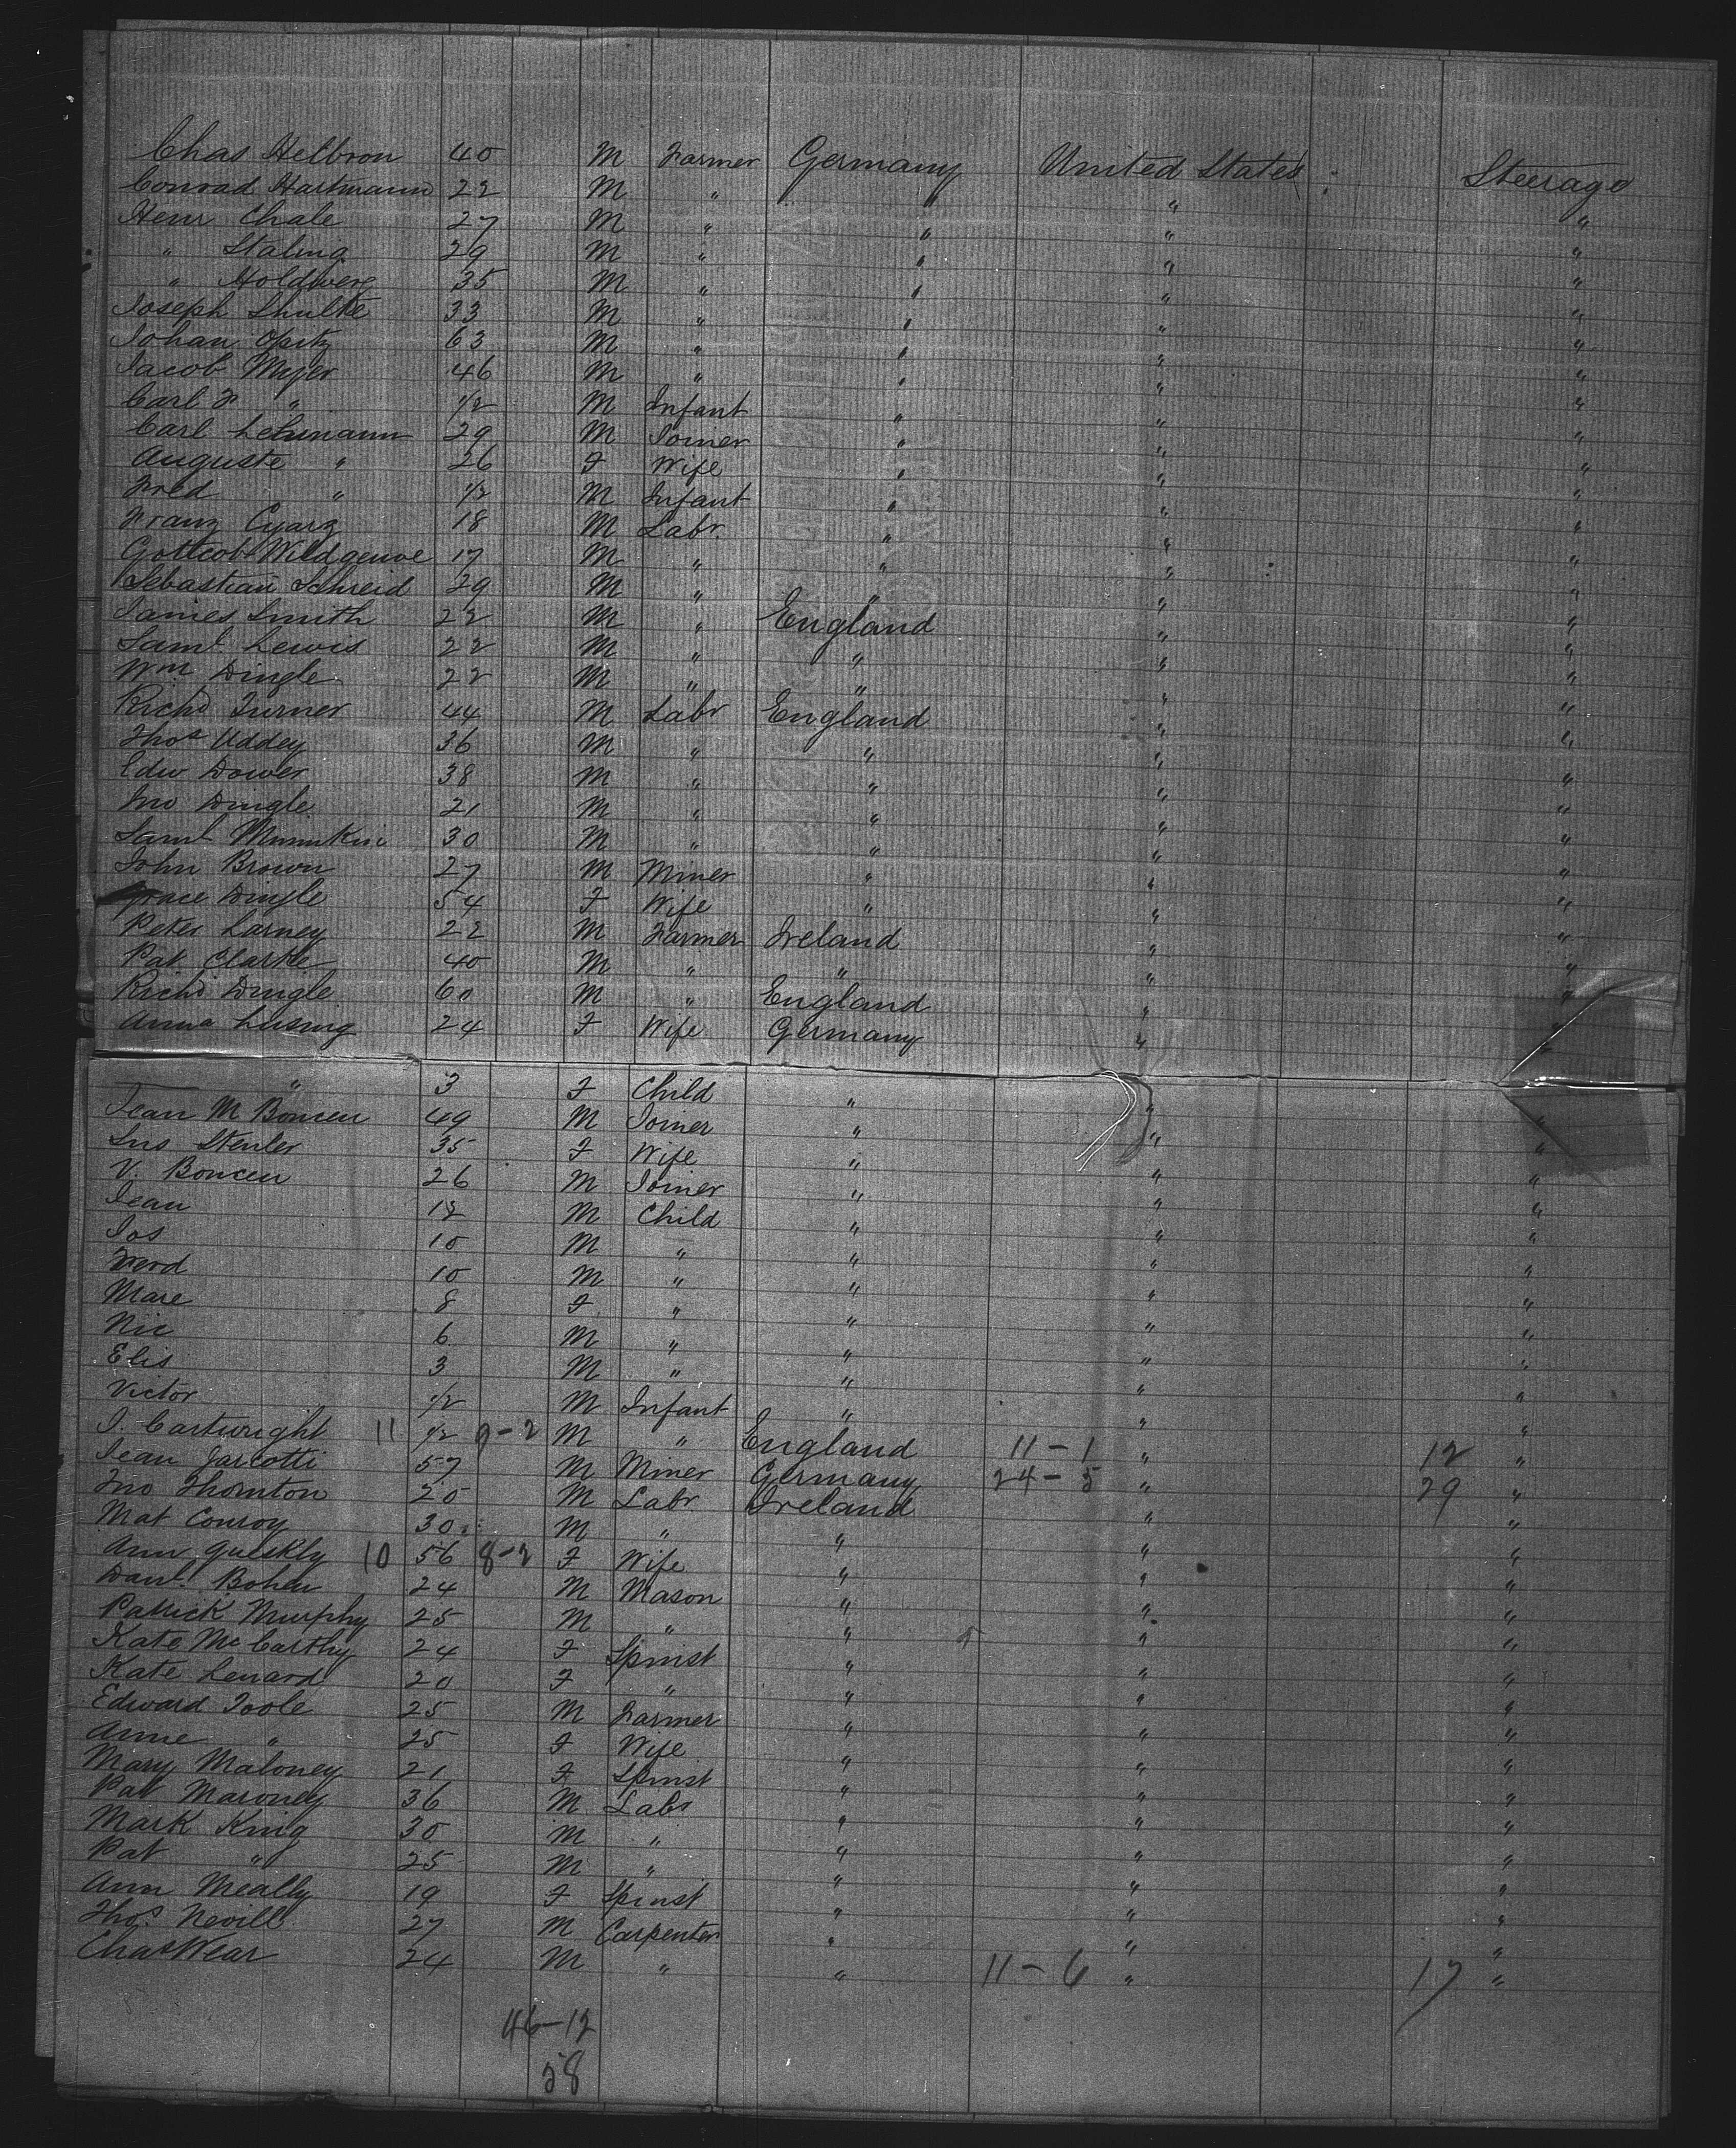 Chas Helbron 40 M Farmer Germany United States Steerage
Conrad Hartmann 22 M " " " "
Henr Chale 27 M " " " "
" Staling 29 M " " " "
" Holdwerg 35 M " " " "
Joseph Shulte 33 M " " " "
Johan Opitz 63 M " " " "
Jacob Myer 46 M " " " "
Carl F " 1/2 M Infant " " "
Carl Lehmann 29 M Joiner " " "
Auguste " 26 F Wife " " "
Fred " 1/2 M Infant " " "
Franz Cyarz 18 M Labr. " " "
Gottcob Wildgeuve 17 M " " " "
Sebastian Schreid 29 M " " " "
James Smith 22 M " England " "
Saml Lewis 22 M " " " "
Wm Dingle 22 M " " " "
Richd Turner 44 M Labr England " "
Thos Uddey 36 M " " " "
Edw Dower 38 M " " " "
Jno Dingle 21 M " " " "
Saml 30 M " " " "
John Brown 27 M Miner " " "
Grace Dingle 54 F Wife " " "
Peter Larney 22 M Farmer Ireland " "
Pat Clarke 40 M " " " "
Richd Dingle 60 M " England " "
Anna Lusing 24 F Wife Germany " "
" 3 F Child " " "
Jean M Boncen 49 M Joiner " " "
Sus Stenler 35 F Wife " " "
V. Boncen 26 M Joiner " " "
Jean 12 M Child " " "
Jos 10 M " " " "
Ferd 10 M " " " "
Mare 8 F " " " "
Nic 6 M " " " "
Elis 3 M " " " "
Victor 1/2 M Infant " " "
J. Cartwright 11 1/2 9-2 M " England 11-1 " 12 "
Jean Jarcotti 57 M Miner Germany 24-5 " 29 "
Jno Thornton 20 M Labr Ireland " "
Mat Conroy 30 M " " " "
Ann Queskly 10 56 8-2 F Wife " " "
Danl. Bohen 24 M Mason " " "
Patrick Murphy 25 M " " " "
Kate McCarthy 24 F Spinst " " "
Kate Lenard 20 F " " " "
Edward Toole 25 M Farmer " " "
Anne " 25 F Wife " " "
Mary Maloney 21 F Spinst " " "
Pat Maroney 36 M Labr " " "
Mark King 30 M " " " "
Pat " 25 M " " " "
Ann Meally 19 F Spinst " " "
Thos Nevill 27 M Carpenter " " "
Chas Wear 24 M " " 11-6 " 17 "
46-12
58